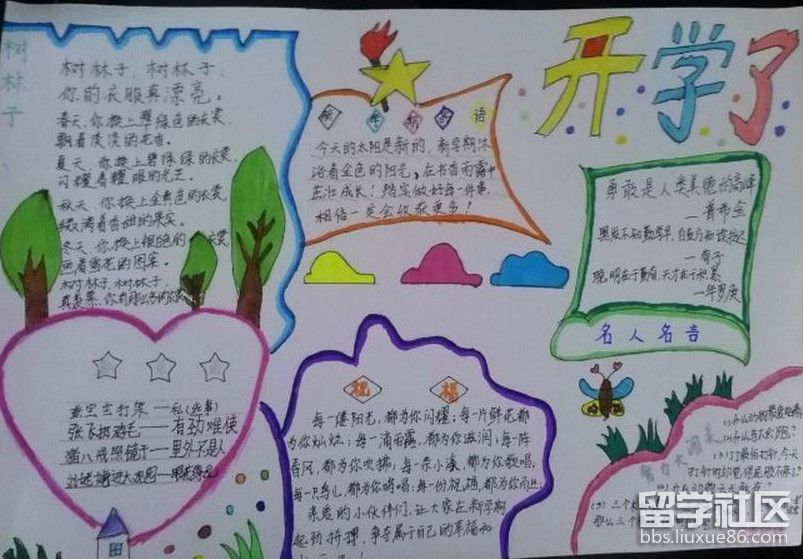 开学了
树林子
树林子，树林子，
你的衣服真漂亮。
春天，你换上翠绿色的衣裳，
飘着淡淡的花香。
夏天，你换上碧绿绿的衣裳，
闪耀着耀眼的光芒。
秋天，你换上金黄色的衣裳，
挂满着香甜的果实。
冬天，你换上银色的衣裳
画着雪花的图案。
树林子，树林子，
新学期语
今天的太阳是新的，新学期沐
浴着金色的阳光，在书香雨露中
茁壮成长！踏实做好每一件事，
相信一定会收获更多！
勇敢是人类美德的高峰
—普希金
黑发不知勤学早，白首方悔读书迟
聪明在于勤奋，天才在于积累
—华罗庚
名人名言
张飞抓鸡毛——有劲难使
猪八戒照镜子——里外不是人
刘姥姥进大观园——眼花缭乱
祝福
每一缕阳光，都为你闪耀；每一片鲜花都
为你灿烂；每一滴雨露，都为你滋润；每一阵
春风，都为你吹拂；每一条小溪，都为你歌唱；
每一只鸟儿，都为你鸣唱；每一份祝福，都为你而
亲爱的小伙伴们，让大家在新学期
起始拼搏，争夺属于自己的幸福和
留学社区
bbs.liuxue86.com